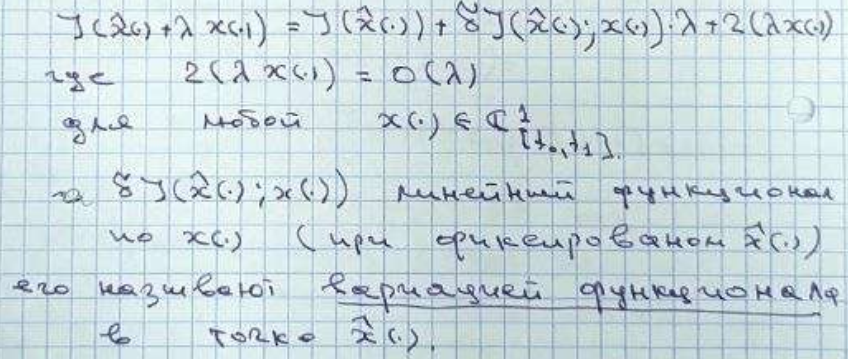 J(x̂(·) + λ x(·)) = J(x̂(·)) + δJ(x̂(·); x(·))·λ + r(λx(·))
где r(λ x(·)) = o(λ)
для любой x(·) ∈ C¹[t₀, t₁].
а δJ(x̂(·); x(·)) линейный функционал
по x(·) (при фиксированом x̂(·))
его называют вариацией функционала
в точке x̂(·).